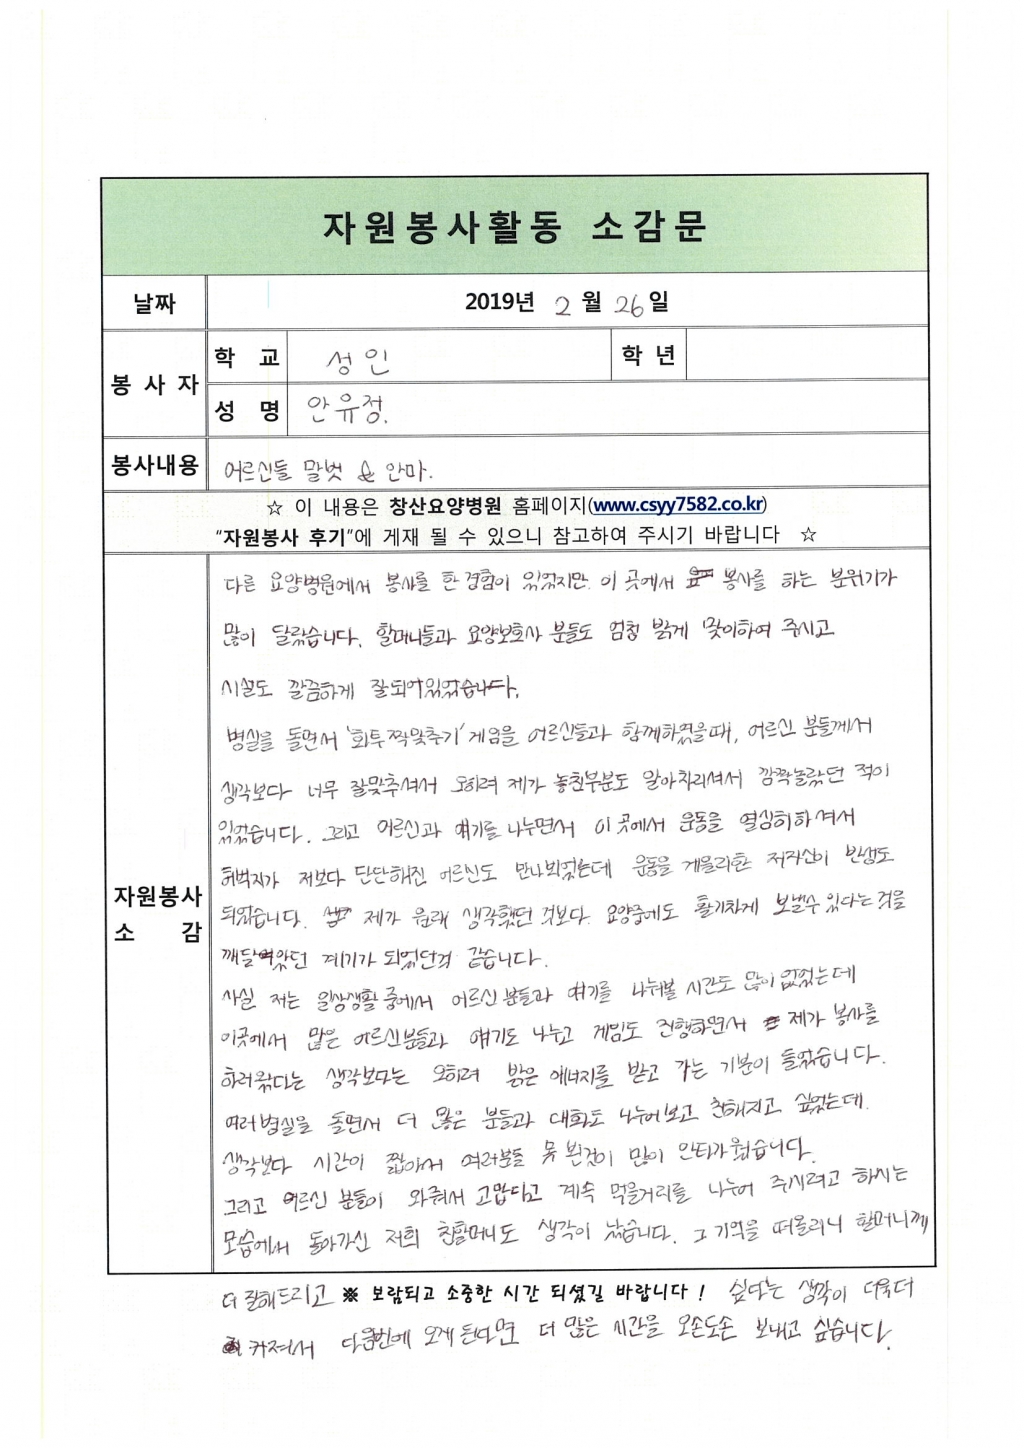 자원봉사활동 소감문
날짜 2019년 2월 26일
봉사자 학 교 성인 학 년
성 명 안유정.
봉사내용 어르신들 말벗 & 안마.
☆ 이 내용은 창산요양병원 홈페이지(www.csyy7582.co.kr)
"자원봉사 후기"에 게재 될 수 있으니 참고하여 주시기 바랍니다 ☆
자원봉사 소 감
다른 요양병원에서 봉사를 한 경험이 있었지만 이 곳에서 봉사를 하는 분위기가
많이 달랐습니다. 할머니들과 요양보호사 분들도 엄청 밝게 맞이하여 주시고
시설도 깔끔하게 잘되어있었습니다.
병실을 돌면서 '화투짝맞추기' 게임을 어르신들과 함께하였을때, 어르신 분들께서
생각보다 너무 잘맞추셔서 오히려 제가 놓친부분도 알아차리셔서 깜짝놀랐던 적이
있었습니다. 그리고 어르신과 얘기를 나누면서 이 곳에서 운동을 열심히하셔서
허벅지가 저보다 단단해진 어르신도 만나뵈었는데 운동을 게을리한 저자신이 반성도
되었습니다. 제가 원래 생각했던 것보다 요양중에도 활기차게 보낼수있다는 것을
깨달았던 계기가 되었던것 같습니다.
사실 저는 일상생활 중에서 어르신 분들과 얘기를 나눠볼 시간도 많이 없었는데
이곳에서 많은 어르신분들과 얘기도 나누고 게임도 진행하면서 제가 봉사를
하러왔다는 생각보다는 오히려 밝은 에너지를 받고 가는 기분이 들었습니다.
여러병실을 돌면서 더 많은 분들과 대화도 나누어보고 친해지고 싶었는데.
생각보다 시간이 짧아서 여러분들 못 뵌것이 많이 안타까웠습니다.
그리고 어르신 분들이 와줘서 고맙다고 계속 먹을거리를 나누어 주시려고 하시는
모습에서 돌아가신 저희 친할머니도 생각이 났습니다. 그 기억을 떠올리니 할머니께
더 잘해드리고 ※ 보람되고 소중한 시간 되셨길 바랍니다 ! 싶다는 생각이 더욱더
커져서 다음번에 오게 된다면 더 많은 시간을 오손도손 보내고 싶습니다.